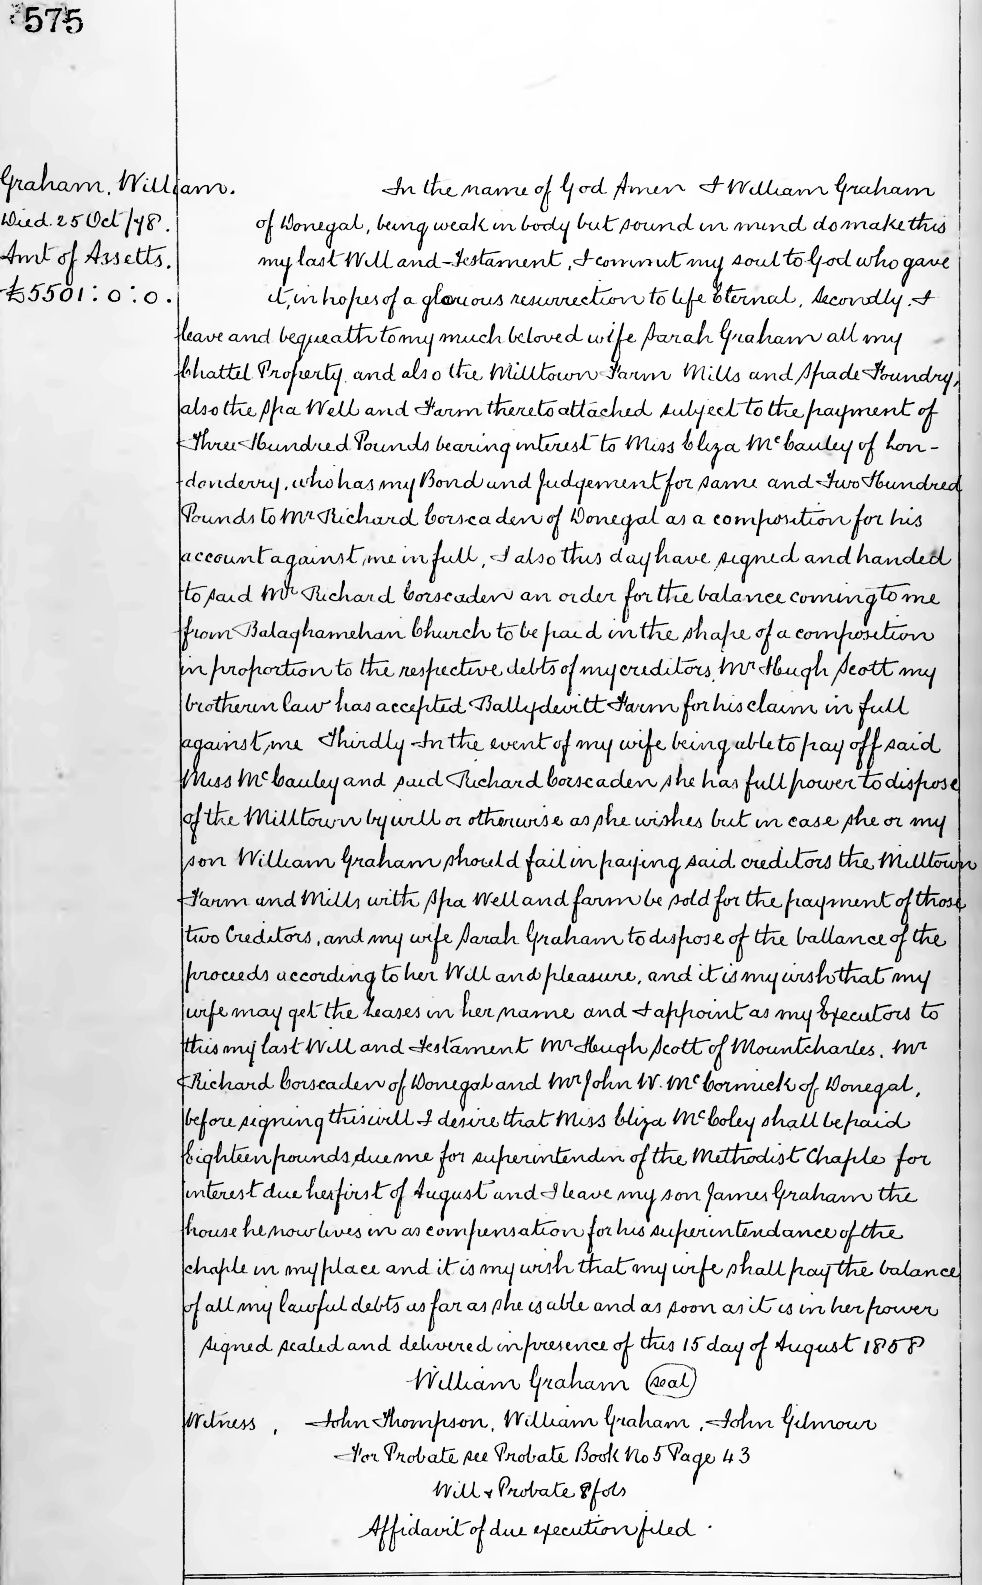 575
Graham, William.
Died 25 Oct/98.
Amt of Assetts.
£5501:0:0.
In the name of God Amen I William Graham
of Donegal, being weak in body but sound in mind do make this
my last Will and Testament, I commit my soul to God who gave
it, in hopes of a glorious resurrection to life Eternal. Secondly. I
leave and bequeath to my much beloved wife Sarah Graham all my
Chattel Property and also the Milltown Farm Mills and Spade Foundry,
also the Spa Well and Farm thereto attached subject to the payment of
Three Hundred Pounds bearing interest to Miss Eliza McCauley of Lon-
donderry, who has my Bond and Judgement for same and Two Hundred
Pounds to Mr Richard Corscaden of Donegal as a composition for his
account against me in full, I also this day have signed and handed
to said Mr Richard Corscaden an order for the balance coming to me
from Balaghamehan Church to be paid in the shape of a composition
in proportion to the respective debts of my creditors, Mr Hugh Scott my
brother in law has accepted Ballydevitt Farm for his claim in full
against me Thirdly In the event of my wife being able to pay off said
Miss McCauley and said Richard Corscaden she has full power to dispose
of the Milltown by will or otherwise as she wishes but in case she or my
son William Graham should fail in paying said creditors the Milltown
Farm and Mills with Spa Well and farm be sold for the payment of those
two Creditors, and my wife Sarah Graham to dispose of the ballance of the
proceeds according to her Will and pleasure, and it is my wish that my
wife may get the Leases in her name and I appoint as my Executors to
this my last Will and Testament Mr Hugh Scott of Mountcharles, Mr
Richard Corscaden of Donegal and Mr John W. McCormick of Donegal,
before signing this will I desire that Miss Eliza McColey shall be paid
Eighteen pounds due me for superintendin of the Methodist Chaple for
interest due her first of August and I leave my son James Graham the
house he now lives in as compensation for his superintendance of the
chaple in my place and it is my wish that my wife shall pay the balance
of all my lawful debts as far as she is able and as soon as it is in her power
signed sealed and delivered in presence of this 15 day of August 1858
William Graham (seal)
Witness, John Thompson, William Graham, John Gilmour
For Probate see Probate Book No 5 Page 43
Will & Probate 8 fols
Affidavit of due execution filed.